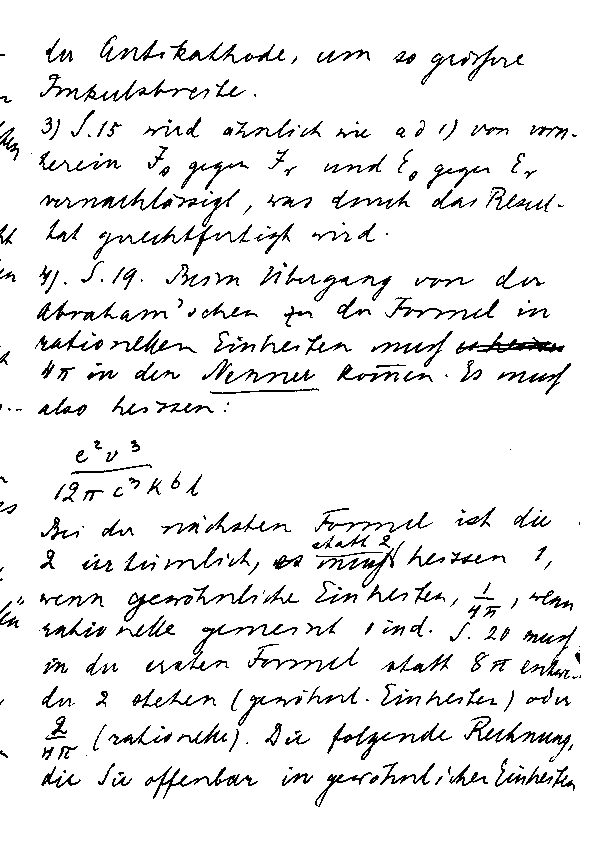 der Antikathode, um so grössere
Impulsbreite.
3) S. 15 wird ähnlich wie ad 1) von vorn-
herein F₀ gegen Fᵣ und E₀ gegen Eᵣ
vernachlässigt, was durch das Resul-
tat gerechtfertigt wird.
4). S. 19. Beim Übergang von der
Abraham'schen zu der Formel in
rationellen Einheiten muß
4π in den Nenner kom̄en. Es muß
also heissen:
e² v³
12π c³ k⁶ l
Bei der nächsten Formel ist die
2 irrtümlich, es muß statt 2 heissen 1,
wenn gewöhnliche Einheiten, 1/4π, wenn
rationelle gemeint sind. S. 20 muß
in der ersten Formel statt 8π entwe-
der 2 stehen (gewöhnl. Einheiten) oder
2/4π (rationelle). Die folgende Rechnung,
die Sie offenbar in gewöhnlicher Einheiten